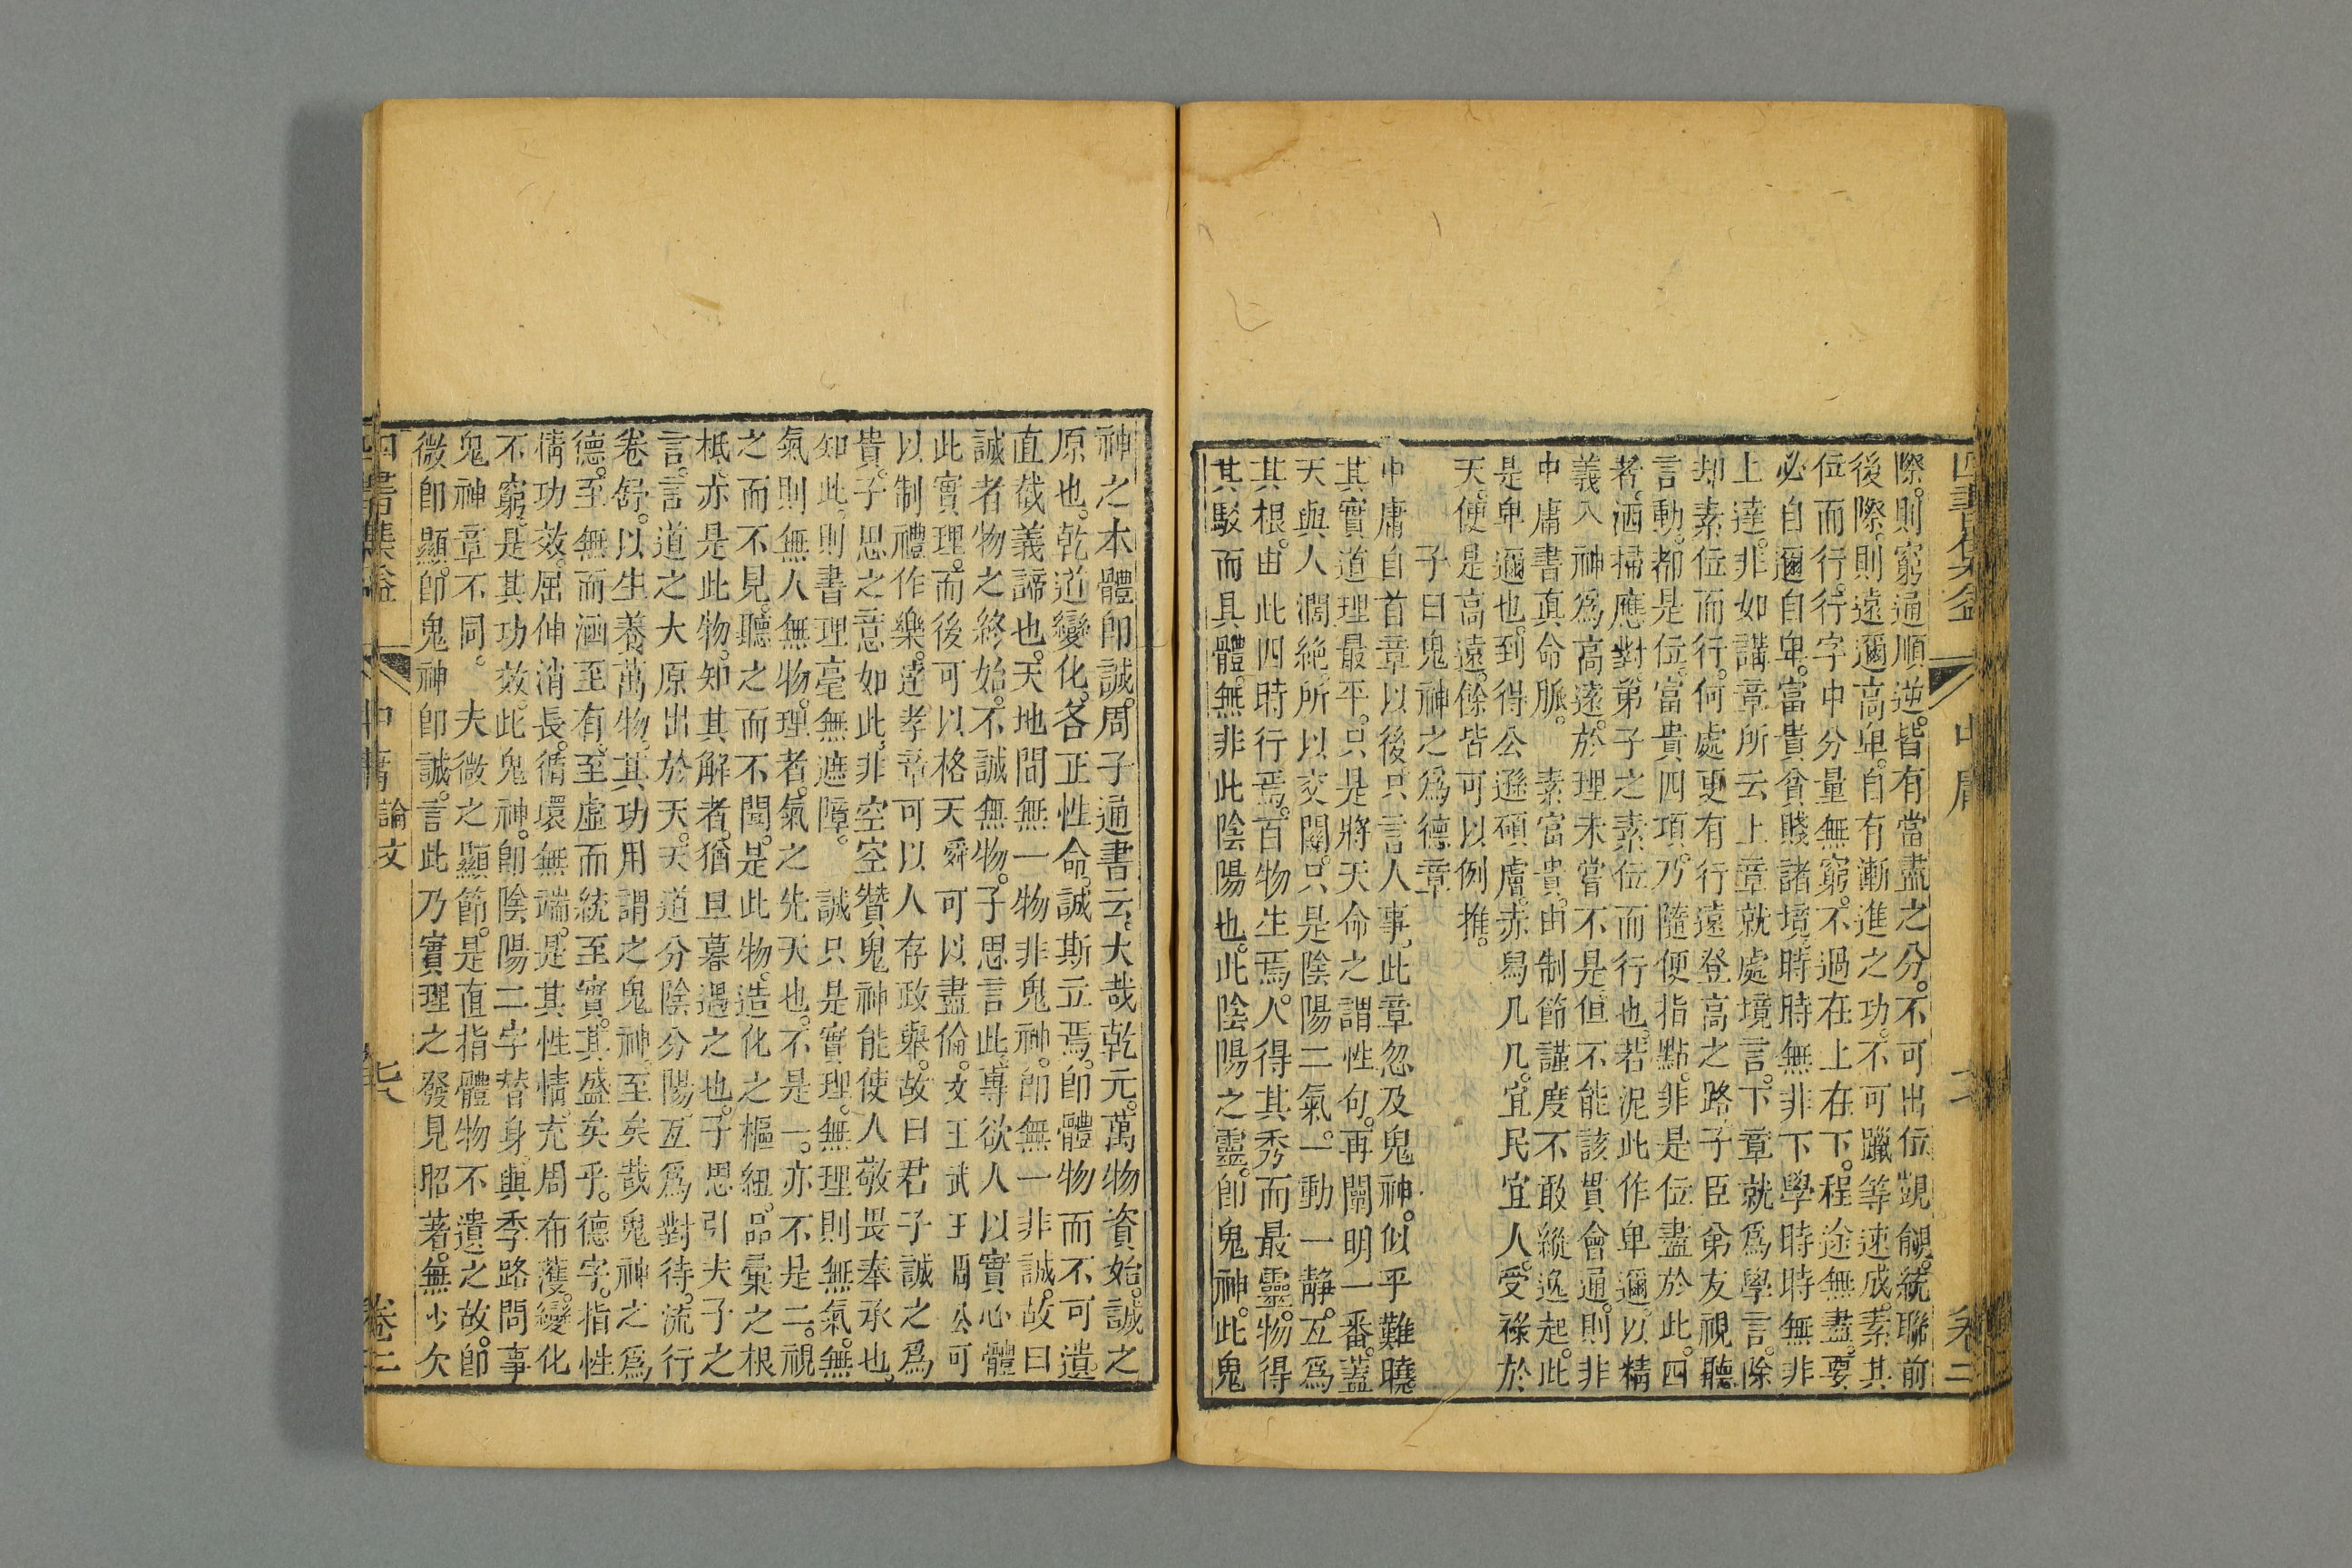 四書集益 中庸 卷二
際。則窮通順逆。皆有當盡之分。不可出位覬覦。統聯前
後際。則遠邇高卑。自有漸進之功。不可躐等速成。素其
位而行。行字中分量無窮。不過在上在下。程途無盡。要
必自邇自卑。富貴貧賤諸境。時時無非下學。時時無非
上達。非如講章所云上章就處境言。下章就爲學言。除
却素位而行。何處更有行遠登高之路。子臣弟友視聽
言動。都是位。富貴四項。乃隨便指點。非是位盡於此。四
者。洒掃應對。弟子之素位而行也。若泥此作卑邇。以精
義入神爲高遠。於理未嘗不是。但不能該貫會通。則非
中庸書眞命脈。　素富貴。由制節謹度不敢縱逸起。此
是卑邇也。到得公遜碩膚。赤舄几几。宜民宜人。受祿於
天。便是高遠。餘皆可以例推。
子曰鬼神之爲德章
中庸自首章以後只言人事。此章忽及鬼神。似乎難曉。
其實道理最平。只是將天命之謂性句。再闡明一番。蓋
天與人濶絶。所以交關。只是陰陽二氣。一動一靜。互爲
其根。由此四時行焉。百物生焉。人得其秀而最靈。物得
其駁而具體。無非此陰陽也。此陰陽之靈。卽鬼神。此鬼
神之本體卽誠。周子通書云。大哉乾元。萬物資始。誠之
原也。乾道變化。各正性命。誠斯立焉。卽體物而不可遺。
直截義諦也。天地間無一物非鬼神。卽無一非誠。故曰
誠者物之終始。不誠無物。子思言此。專欲人以實心體
此實理。而後可以格天舜可以盡倫。文王武王周公可
以制禮作樂。達孝章可以人存政舉。故曰君子誠之爲
貴。子思之意如此。非空空贊鬼神能使人敬畏奉承也。
知此。則書理毫無遮障。　誠只是實理。無理則無氣。無
氣則無人無物。理者。氣之先天也。不是一。亦不是二。視
之而不見。聽之而不聞。是此物。造化之樞紐。品彙之根
柢。亦是此物。知其解者。猶旦暮遇之也。子思引夫子之
言。言道之大原出於天。天道分陰分陽。互爲對待。流行
卷舒。以生養萬物。其功用謂之鬼神。至矣哉鬼神之爲
德。至無而涵至有。至虛而統至實。其盛矣乎。德字。指性
情功效。屈伸消長。循環無端。是其性情。充周布濩。變化
不窮。是其功效。此鬼神。卽陰陽二字替身。與季路問事
鬼神章不同。　夫微之顯節。是直指體物不遺之故。卽
微卽顯。卽鬼神卽誠。言此乃實理之發見昭著。無少欠
四書集益 中庸 論文 七 卷二